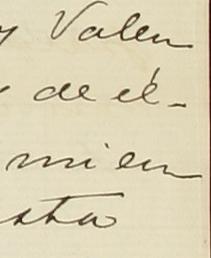 y Valen
de él-
mi en
sta